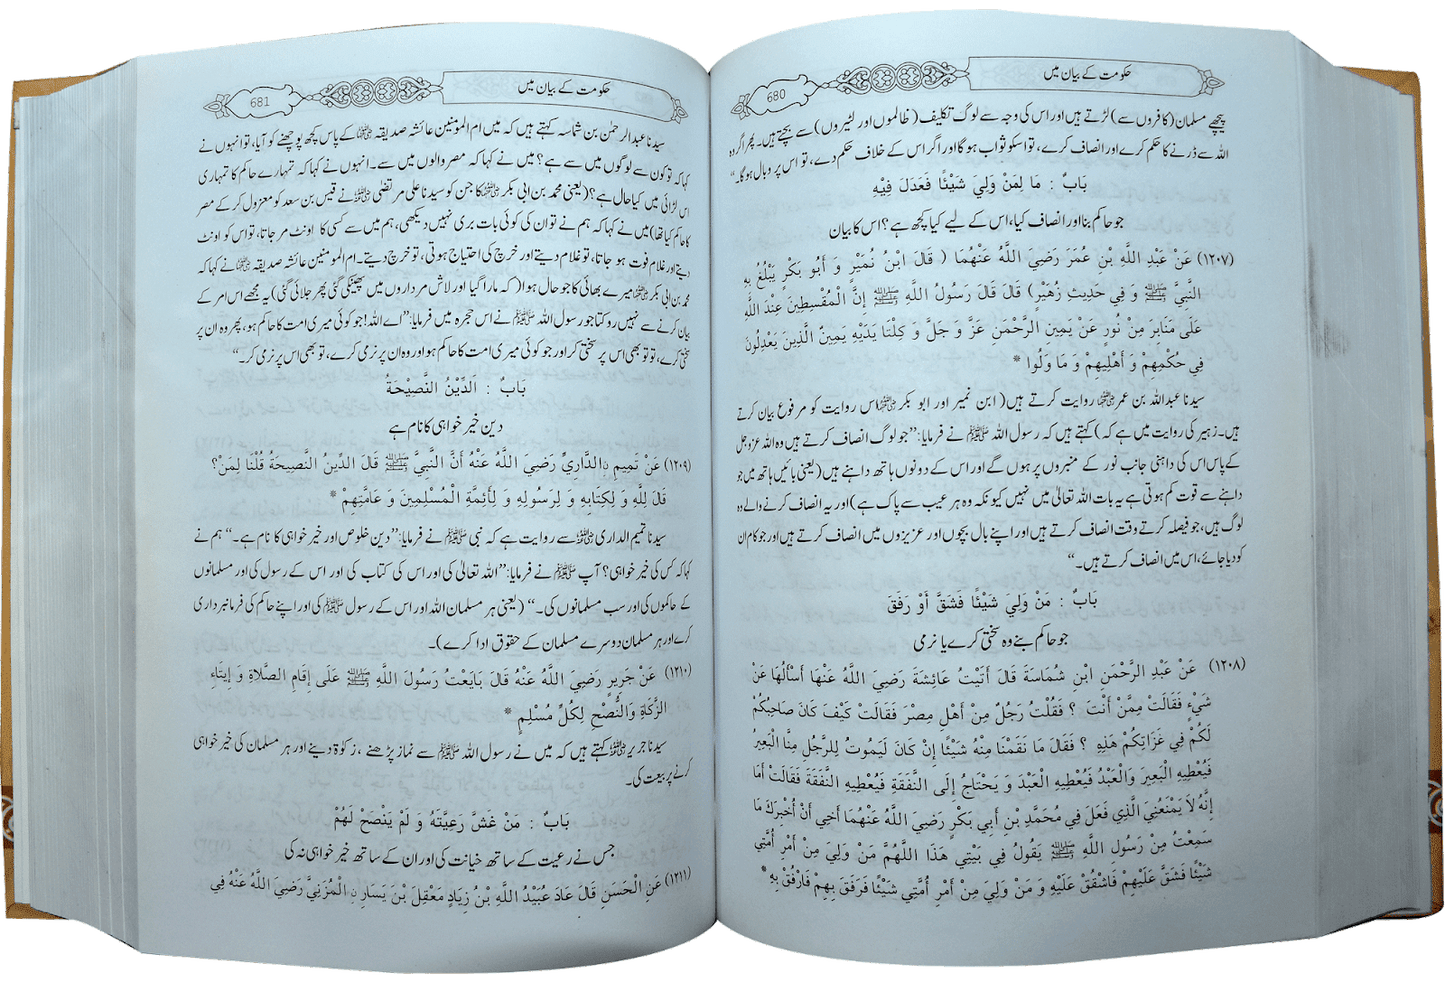 حکومت کے بیان میں
680
پیچھے مسلمان (کافروں سے) لڑتے ہیں اور اس کی وجہ سے لوگ تکلیف (ظالموں اور لٹیروں) سے بچتے ہیں۔ پھر اگر وہ
اللہ سے ڈرنے کا حکم کرے اور انصاف کرے، تو اسکو ثواب ہوگا اور اگر اس کے خلاف حکم دے، تو اس پر وبال ہوگا۔“
بَابٌ : مَا لِمَنْ وَلِيَ شَيْئًا فَعَدَلَ فِيْهِ
جو حاکم بنا اور انصاف کیا، اس کے لیے کیا کچھ ہے؟ اس کا بیان
(۱۲۰۷) عَنْ عَبْدِ اللَّهِ بْنِ عُمَرَ رَضِيَ اللَّهُ عَنْهُمَا ( قَالَ ابْنُ نُمَيْرٍ وَ أَبُو بَكْرٍ يَبْلُغُ بِهِ
النَّبِيَّ ﷺ وَ فِي حَدِيثِ زُهَيْرٍ) قَالَ قَالَ رَسُولُ اللَّهِ ﷺ إِنَّ الْمُقْسِطِينَ عِنْدَ اللَّهِ
عَلَى مَنَابِرَ مِنْ نُورٍ عَنْ يَمِينِ الرَّحْمَنِ عَزَّ وَ جَلَّ وَ كِلْتَا يَدَيْهِ يَمِينٌ الَّذِينَ يَعْدِلُونَ
فِي حُكْمِهِمْ وَ أَهْلِيهِمْ وَ مَا وَلُوا *
سیدنا عبداللہ بن عمر ؓ روایت کرتے ہیں (ابن نمیر اور ابو بکر ؓ اس روایت کو مرفوع بیان کرتے
ہیں۔ زہیر کی روایت میں ہے کہ) کہتے ہیں کہ رسول اللہ ﷺ نے فرمایا: ”جو لوگ انصاف کرتے ہیں وہ اللہ عزوجل
کے پاس اس کی داہنی جانب نور کے منبروں پر ہوں گے اور اس کے دونوں ہاتھ داہنے ہیں (یعنی بائیں ہاتھ میں جو
داہنے سے قوت کم ہوتی ہے یہ بات اللہ تعالیٰ میں نہیں کیونکہ وہ ہر عیب سے پاک ہے) اور یہ انصاف کرنے والے وہ
لوگ ہیں، جو فیصلہ کرتے وقت انصاف کرتے ہیں اور اپنے بال بچوں اور عزیزوں میں انصاف کرتے ہیں اور جو کام ان
کو دیا جائے، اس میں انصاف کرتے ہیں۔“
بَابٌ : مَنْ وَلِيَ شَيْئًا فَشَقَّ أَوْ رَفَقَ
جو حاکم بنے وہ سختی کرے یا نرمی
(۱۲۰۸) عَنْ عَبْدِ الرَّحْمَنِ ابْنِ شُمَاسَةَ قَالَ أَتَيْتُ عَائِشَةَ رَضِيَ اللَّهُ عَنْهَا أَسْأَلُهَا عَنْ
شَيْءٍ فَقَالَتْ مِمَّنْ أَنْتَ ؟ فَقُلْتُ رَجُلٌ مِنْ أَهْلِ مِصْرَ فَقَالَتْ كَيْفَ كَانَ صَاحِبُكُمْ
لَكُمْ فِي غَزَاتِكُمْ هَذِهِ ؟ فَقَالَ مَا نَقَمْنَا مِنْهُ شَيْئًا إِنْ كَانَ لَيَمُوتُ لِلرَّجُلِ مِنَّا الْبَعِيرُ
فَيُعْطِيهِ الْبَعِيرَ وَالْعَبْدُ فَيُعْطِيهِ الْعَبْدَ وَ يَحْتَاجُ إِلَى النَّفَقَةِ فَيُعْطِيهِ النَّفَقَةَ فَقَالَتْ أَمَا
إِنَّهُ لَا يَمْنَعُنِي الَّذِي فَعَلَ فِي مُحَمَّدِ بْنِ أَبِي بَكْرٍ رَضِيَ اللَّهُ عَنْهُمَا أَخِي أَنْ أُخْبِرَكَ مَا
سَمِعْتُ مِنْ رَسُولِ اللَّهِ ﷺ يَقُولُ فِي بَيْتِي هَذَا اللَّهُمَّ مَنْ وَلِيَ مِنْ أَمْرِ أُمَّتِي
شَيْئًا فَشَقَّ عَلَيْهِمْ فَاشْقُقْ عَلَيْهِ وَ مَنْ وَلِيَ مِنْ أَمْرِ أُمَّتِي شَيْئًا فَرَفَقَ بِهِمْ فَارْفُقْ بِهِ *
حکومت کے بیان میں
681
سیدنا عبدالرحمٰن بن شماسہ کہتے ہیں کہ میں ام المومنین عائشہ صدیقہ ؓ کے پاس کچھ پوچھنے کو آیا، تو انہوں نے
کہا کہ تو کون سے لوگوں میں سے ہے؟ میں نے کہا کہ مصر والوں میں سے۔ انہوں نے کہا کہ تمہارے حاکم کا تمہاری
اس لڑائی میں کیا حال ہے؟ (یعنی محمد بن ابی بکر ؓ کا جن کو سیدنا علی مرتضٰی ؓ نے قیس بن سعد کو معزول کر کے مصر
کا حاکم کیا تھا) میں نے کہا کہ ہم نے تو ان کی کوئی بات بری نہیں دیکھی، ہم میں سے کسی کا اونٹ مر جاتا، تو اس کو اونٹ
دیتے اور غلام فوت ہو جاتا، تو غلام دیتے اور خرچ کی احتیاج ہوتی، تو خرچ دیتے۔ ام المومنین عائشہ صدیقہ ؓ نے کہا کہ
محمد بن ابی بکر ؓ میرے بھائی کا جو حال ہوا (کہ مارا گیا اور لاش مرداروں میں پھینکی گئی پھر جلائی گئی) یہ مجھے اس امر کے
بیان کرنے سے نہیں روکتا جو رسول اللہ ﷺ نے اس حجرہ میں فرمایا: ”اے اللہ! جو کوئی میری امت کا حاکم ہو، پھر وہ ان پر
سختی کرے، تو تو بھی اس پر سختی کر اور جو کوئی میری امت کا حاکم ہو اور وہ ان پر نرمی کرے، تو بھی اس پر نرمی کر۔“
بَابٌ : اَلدِّيْنُ النَّصِيْحَةُ
دین خیر خواہی کا نام ہے
(۱۲۰۹) عَنْ تَمِيمِ ۣالدَّارِيِّ رَضِيَ اللَّهُ عَنْهُ أَنَّ النَّبِيَّ ﷺ قَالَ الدِّينُ النَّصِيحَةُ قُلْنَا لِمَنْ؟
قَالَ لِلَّهِ وَ لِكِتَابِهِ وَ لِرَسُولِهِ وَ لِأَئِمَّةِ الْمُسْلِمِينَ وَ عَامَّتِهِمْ *
سیدنا تمیم الداری ؓ سے روایت ہے کہ نبی ﷺ نے فرمایا: ”دین خلوص اور خیر خواہی کا نام ہے۔“ ہم نے
کہا کہ کس کی خیر خواہی؟ آپ ﷺ نے فرمایا: ”اللہ تعالیٰ کی اور اس کی کتاب کی اور اس کے رسول کی اور مسلمانوں
کے حاکموں کی اور سب مسلمانوں کی۔“ (یعنی ہر مسلمان اللہ اور اس کے رسول ﷺ کی اور اپنے حاکم کی فرمانبرداری
کرے اور ہر مسلمان دوسرے مسلمان کے حقوق ادا کرے)۔
(۱۲۱۰) عَنْ جَرِيرٍ رَضِيَ اللَّهُ عَنْهُ قَالَ بَايَعْتُ رَسُولَ اللَّهِ ﷺ عَلَى إِقَامِ الصَّلَاةِ وَ إِيتَاءِ
الزَّكَاةِ وَالنُّصْحِ لِكُلِّ مُسْلِمٍ *
سیدنا جریر ؓ کہتے ہیں کہ میں نے رسول اللہ ﷺ سے نماز پڑھنے ، زکوٰۃ دینے اور ہر مسلمان کی خیر خواہی
کرنے پر بیعت کی۔
بَابٌ : مَنْ غَشَّ رَعِيَّتَهُ وَ لَمْ يَنْصَحْ لَهُمْ
جس نے رعیت کے ساتھ خیانت کی اور ان کے ساتھ خیر خواہی نہ کی
(۱۲۱۱) عَنِ الْحَسَنِ قَالَ عَادَ عُبَيْدُ اللَّهِ بْنُ زِيَادٍ مَعْقِلَ بْنَ يَسَارِ ۣالْمُزَنِيَّ رَضِيَ اللَّهُ عَنْهُ فِي